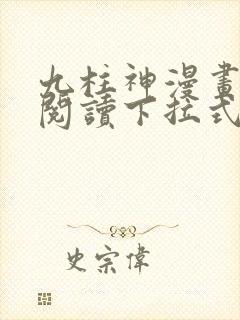 九柱神漫畫
閱讀下拉式
史宗偉